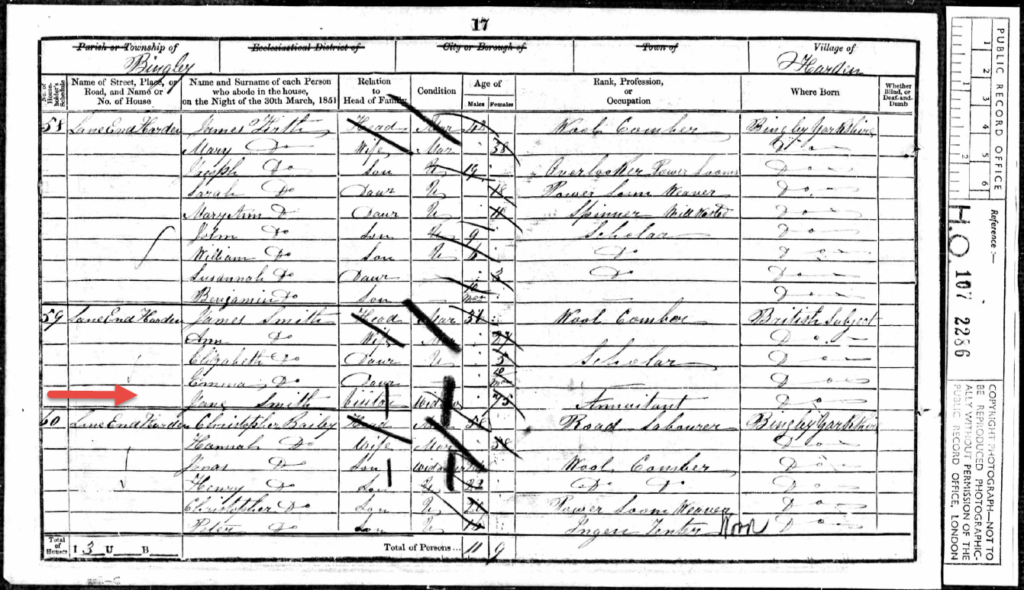 17
Parish or Township of Ecclesiastical District of City or Borough of Town of Village of
Bingley Harden
No. of Householder's Schedule Name of Street, Place, or Road, and Name or No. of House Name and Surname of each Person who abode in the house, on the Night of the 30th March, 1851 Relation to Head of Family Condition Age of Males Females Rank, Profession, or Occupation Where Born Whether Blind, or Deaf-and-Dumb
58 Lane End Harden James Firth Head Mar Wool Comber Bingley Yorkshire
Mary Do Wife Mar 38 Do
Joseph Do Son U 19 Overlooker Power Looms Do
Sarah Do Daur U 18 Power Loom Weaver Do
Mary Ann D Daur U 11 Spinner Do
John Do Son U 9 Scholar Do
William Do Son U Do Do
Susannah Do Daur Do Do
Benjamin Do Son
59 Lane End Harden James Smith Head Mar 31 Wool Comber British Subject
Ann Do Wife Do
Elizabeth Do Daur U 5 Scholar Do
Emma Do Daur Do
Jane Smith Widow 75 Annuitant Do
60 Lane End Harden Christopher Bailey Head Road Labourer Bingley Yorkshire
Hannah Do Wife Mar 58 Do
Jonas D Son Widower Wool Comber Do
Henry Do Son U D Do Do
Christopher Do Son U 21 Power Loom Weaver Do
Peter D Son U Do
Total of Houses I 3 U B Total of Persons ... 11 9
PUBLIC RECORD OFFICE
1 2 3 4 5 6
1 2
Reference :-
H.O. 107 2286
COPYRIGHT PHOTOGRAPH—NOT TO
BE REPRODUCED PHOTOGRAPHIC-
ALLY WITHOUT PERMISSION OF THE
PUBLIC RECORD OFFICE, LONDON